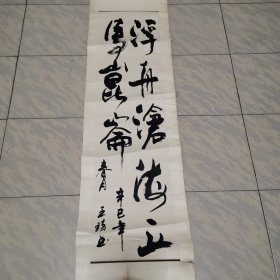 浮舟滄海立
馬崑崙
辛巳年
春月